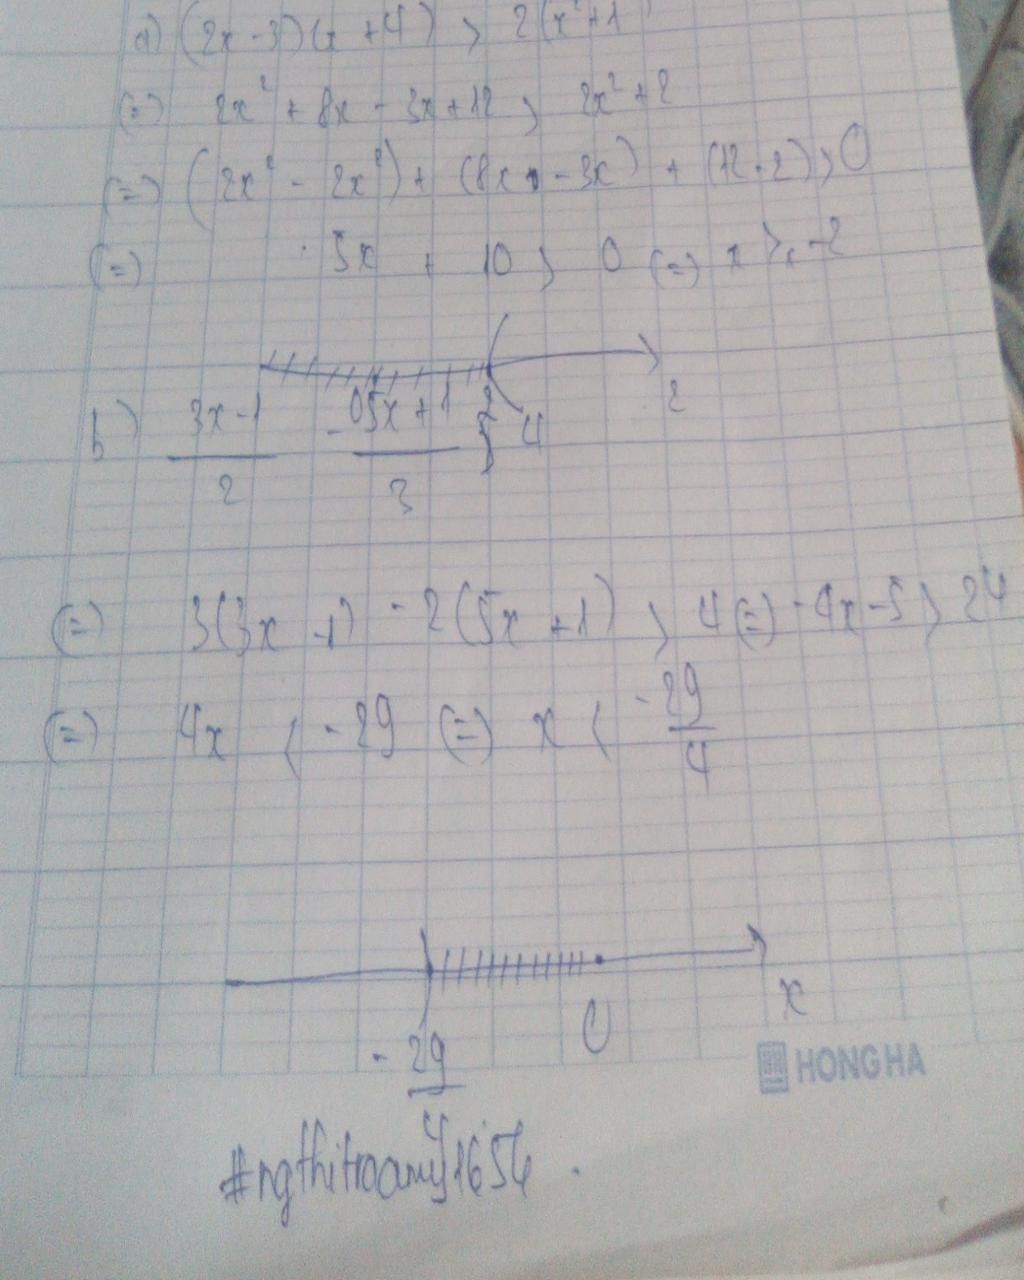 a) (2x - 3)(x + 4) > 2(x² + 1
(=) 2x² + 8x - 3x + 12 > 2x² + 2
(=) (2x² - 2x²) + (8x - 3x) + (12 - 2) > 0
(=) 5x + 10 > 0 (=) x > -2
2
b) 3x - 1 / 2 - 5x + 1 / 3 > 4
(=) 3(3x - 1) - 2(5x + 1) > 4 (=) - 4x - 5 > 24
(=) 4x < - 29 (=) x < - 29 / 4
- 29 / 4 0 x
HONG HA
#ngthitraamy1656.